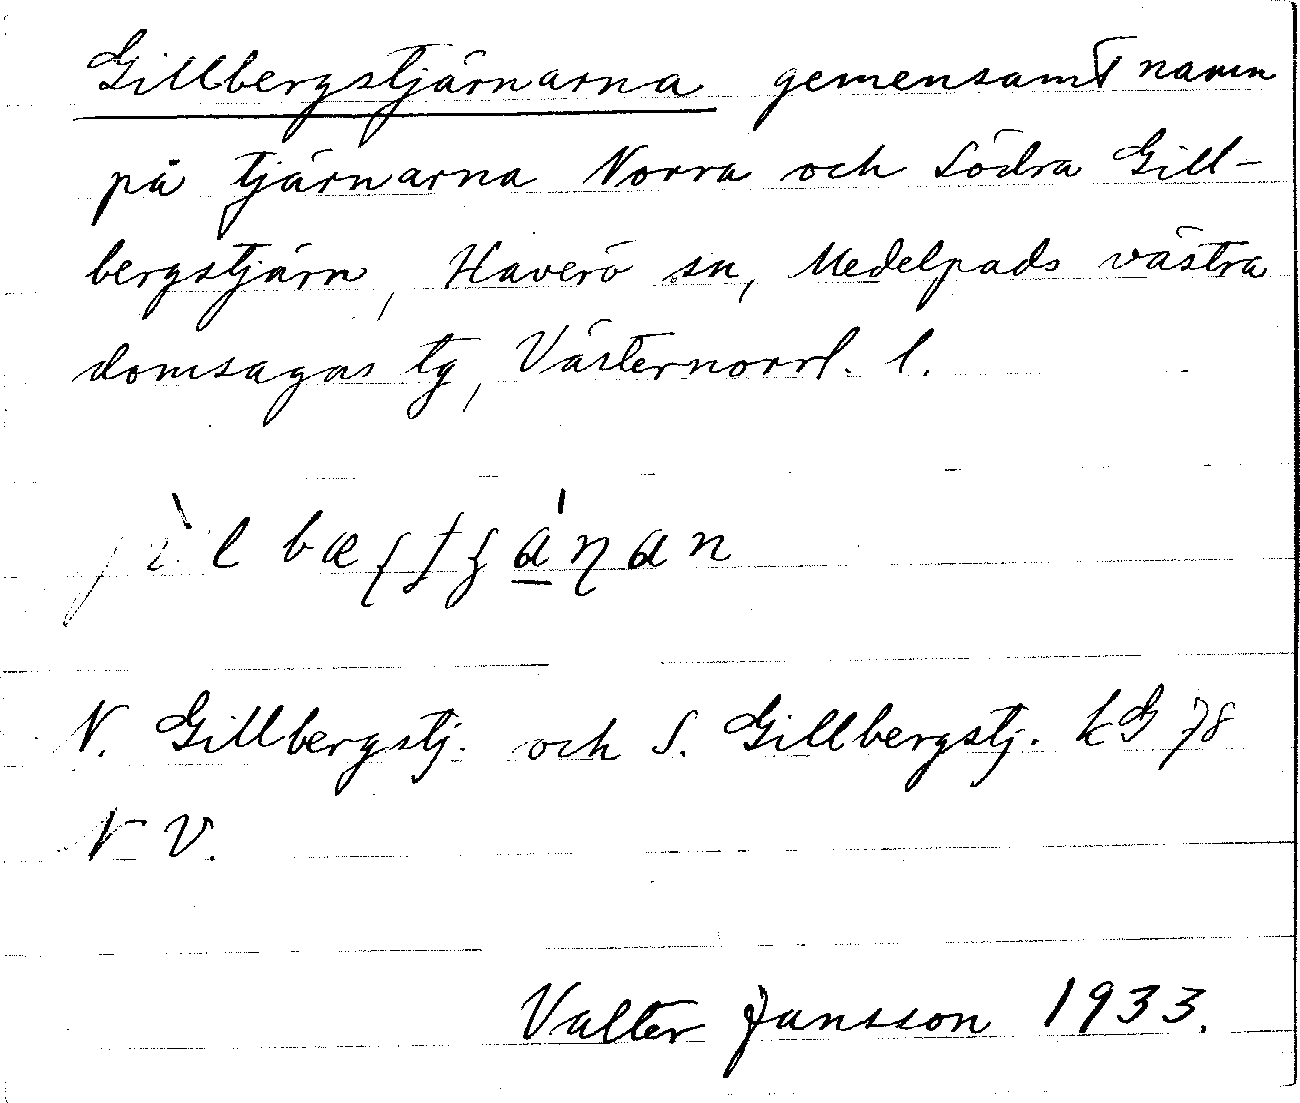 Gillbergstjärnarna gemensamt namn
på tjärnarna Norra och Södra Gill-
bergstjärn, Haverö sn, Medelpads västra
domsagas tg, Västernorrl. l.
N. Gillbergstj. och S. Gillbergstj. kG 78
NV.
Valter Jansson 1933.